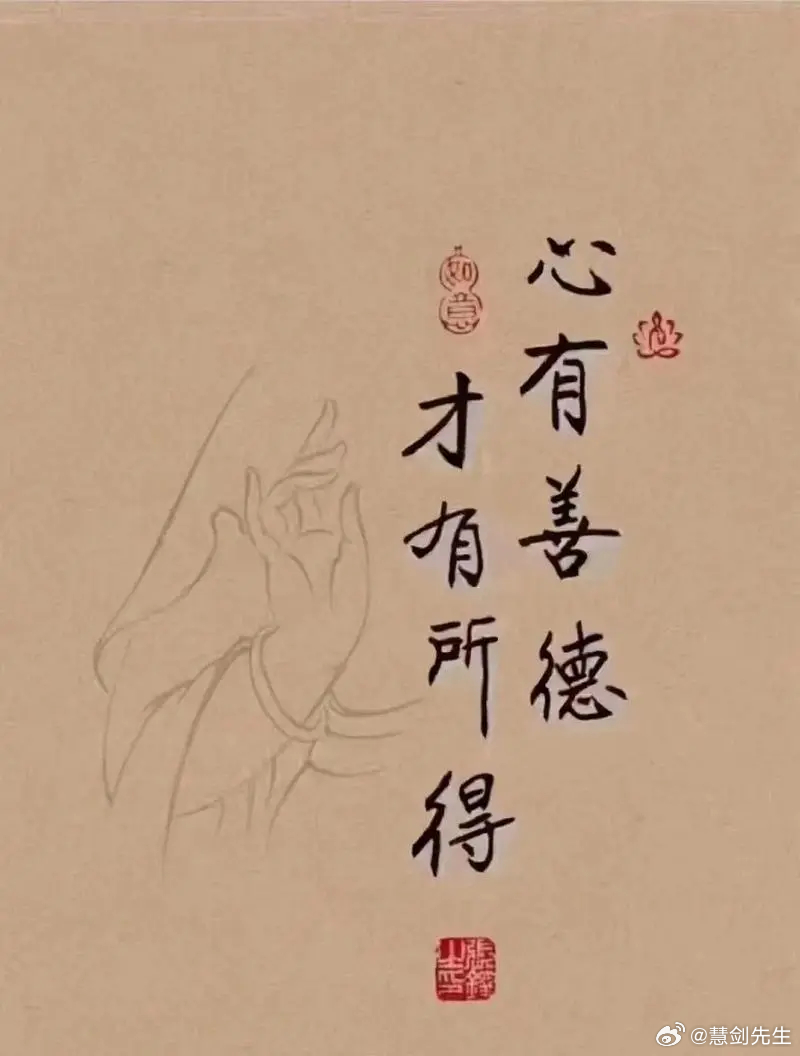 心有善德
才有所得
如意
@慧剑先生